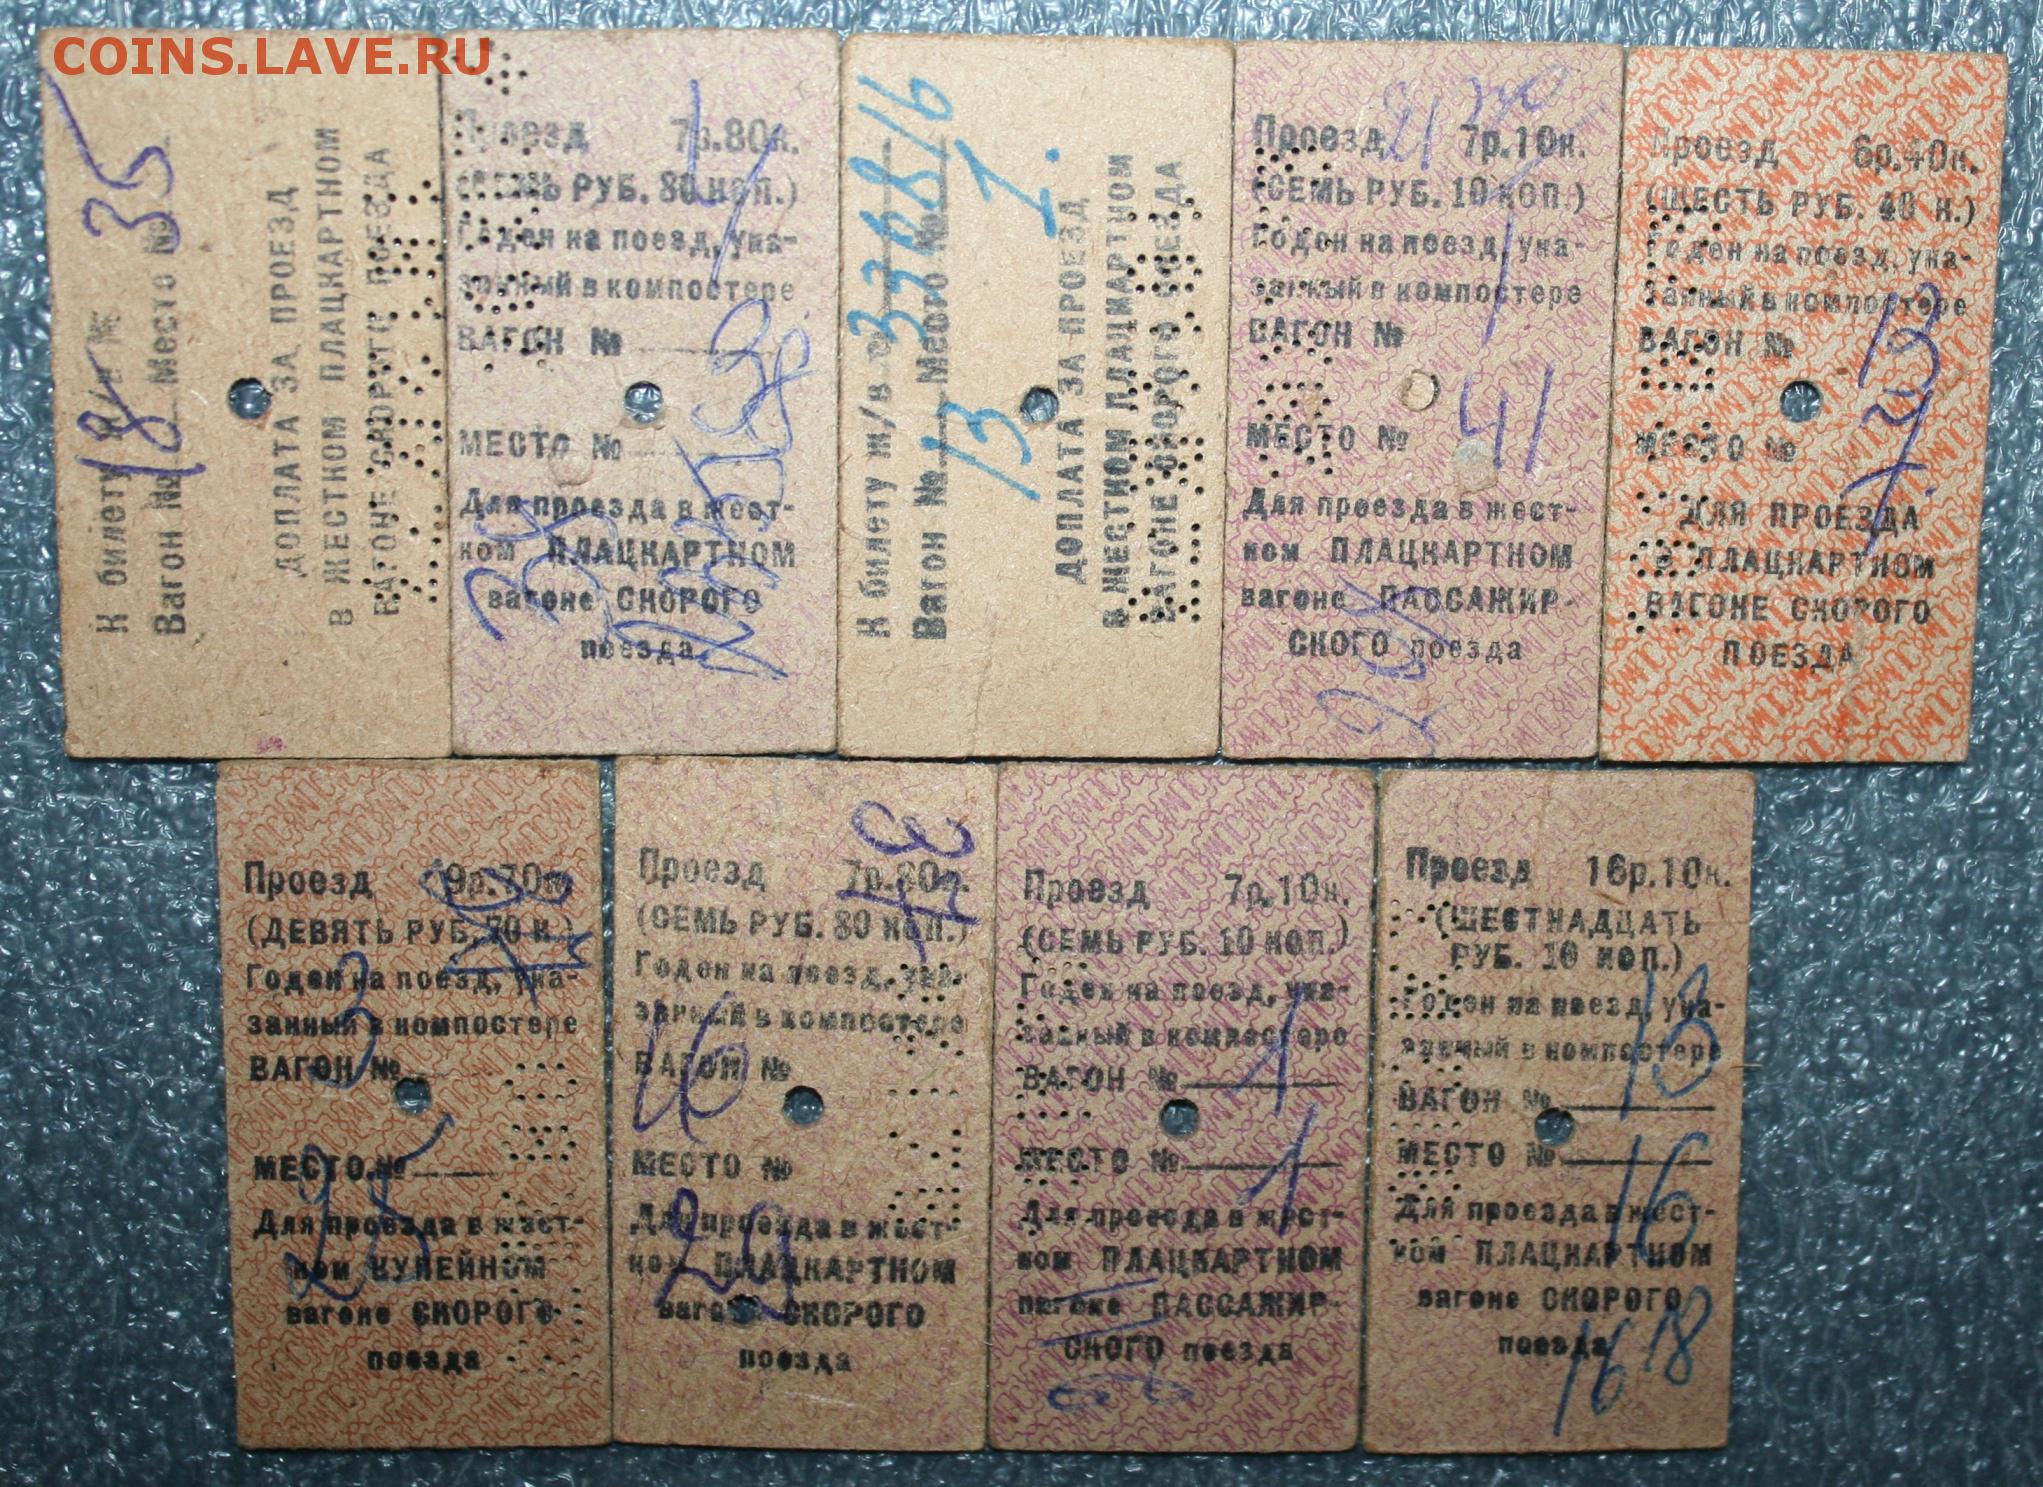 COINS.LAVE.RU
К билету
Вагон № 18 Место № 35
ДОПЛАТА ЗА ПРОЕЗД
В ЖЕСТКОМ ПЛАЦКАРТНОМ
ВАГОНЕ СКОРОГО ПОЕЗДА
Проезд 7р.80к.
(СЕМЬ РУБ. 80 КОП.)
Годен на поезд, ука-
занный в компостере
ВАГОН №
МЕСТО №
Для проезда в жест-
ком ПЛАЦКАРТНОМ
вагоне СКОРОГО
поезда
К билету ж/в
Вагон № 13 Место №
ДОПЛАТА ЗА ПРОЕЗД
В ЖЕСТКОМ ПЛАЦКАРТНОМ
ВАГОНЕ СКОРОГО ПОЕЗДА
Проезд 7р.10к.
(СЕМЬ РУБ. 10 КОП.)
Годен на поезд, ука-
занный в компостере
ВАГОН №
МЕСТО № 41
Для проезда в жест-
ком ПЛАЦКАРТНОМ
вагоне ПАССАЖИР-
СКОГО поезда
Проезд 6р.40к.
(ШЕСТЬ РУБ. 40 К.)
Годен на поезд, ука-
занный в компостере
ВАГОН №
МЕСТО №
ДЛЯ ПРОЕЗДА
В ПЛАЦКАРТНОМ
ВАГОНЕ СКОРОГО
ПОЕЗДА
Проезд 9р.70к.
(ДЕВЯТЬ РУБ. 70 К.)
Годен на поезд, ука-
занный в компостере
ВАГОН № 3
МЕСТО №
Для проезда в жест-
ком КУПЕЙНОМ
вагоне СКОРОГО
поезда
Проезд 7р.80к.
(СЕМЬ РУБ. 80 КОП.)
Годен на поезд, ука-
занный в компостере
ВАГОН №
МЕСТО №
29
Для проезда в жест-
ком ПЛАЦКАРТНОМ
вагоне СКОРОГО
поезда
Проезд 7р.10к.
(СЕМЬ РУБ. 10 КОП.)
Годен на поезд, ука-
занный в компостере
ВАГОН № 1
МЕСТО № 1
Для проезда в жест-
ком ПЛАЦКАРТНОМ
вагоне ПАССАЖИР-
СКОГО поезда
Проезд 16р.10к.
(ШЕСТНАДЦАТЬ
РУБ. 10 КОП.)
Годен на поезд, ука-
занный в компостере
ВАГОН № 13
МЕСТО № 16
Для проезда в жест-
ком ПЛАЦКАРТНОМ
вагоне СКОРОГО
поезда
16 18